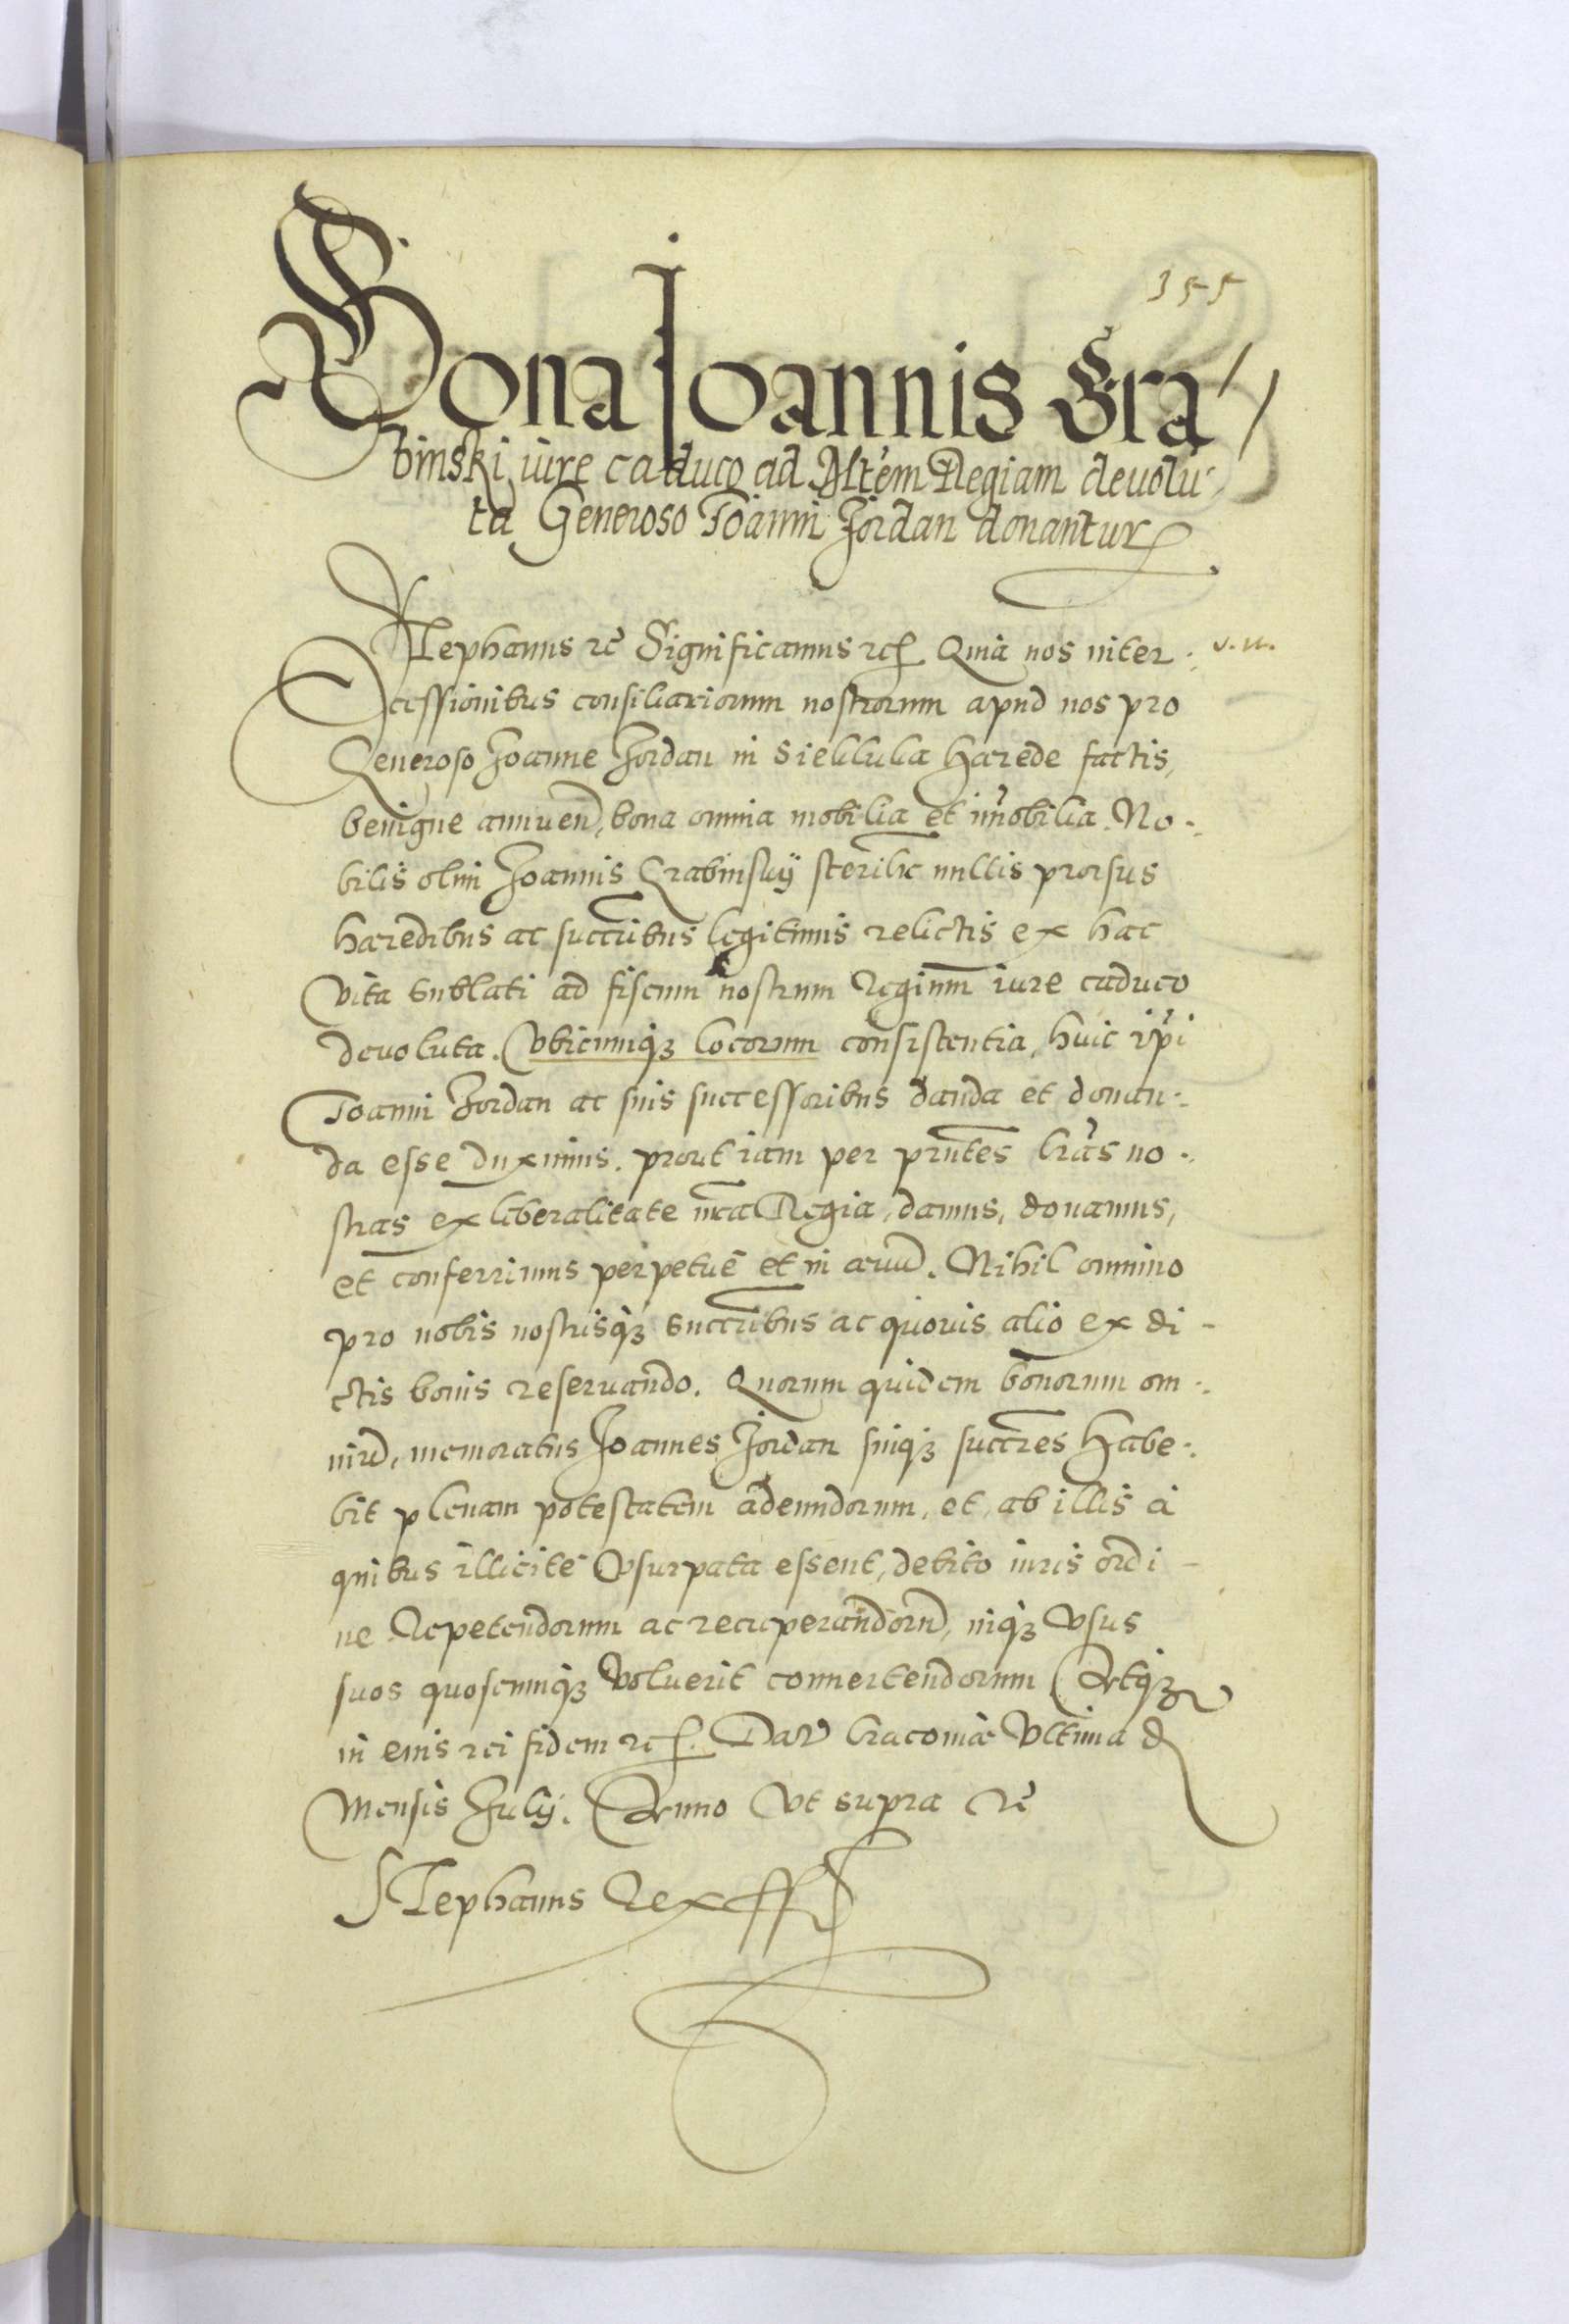 355
Bona Ioannis Gra
binski iure caduco ad Mtem Regiam deuolu
ta Generoso Ioanni Jordan donantur
Stephanus rc Significamus rc Quia nos inter
v. u.
cessionibus consiliariorum nostrorum apud nos pro
Generoso Joanne Jordan in Sielilulia hærede factis,
benigne annuen, bona omnia mobilia et imobilia. No
bilis olim Joannis Grabinskij sterilr nullis prorsus
hæredibus ac succribus legitimis relictis ex hac
Vita sublati ad fiscum nostrum Regium iure caduco
devoluta. Vbicumq locorum consistentia, huic ipi
Ioanni Jordan ac suis successoribus danda et donan
da esse duximus. prout iam per pntes lras no
stras ex liberalitate nra Regia, damus, donamus,
et conferrimus perpetue et in ævu. Nihil omnino
pro nobis nostrisq succribus ac quouis alio ex di
ctis bonis reseruando. Quorum quidem bonorum om
niu, memoratus Joannes Jordan suiq succres habe
bit plenam potestatem adeundorum, et ab illis à
quibus illicite Vsurpata essent, debito iuris ordi
ne Repetendorum ac recuperandoru, inq Vsus
suos quoscumq Voluerit conuertendorum Atq
in eius rei fidem rc. Dat Cracouiæ Vltima d
Mensis Julij. Anno Vt supra rc
Stephanus Rex ff